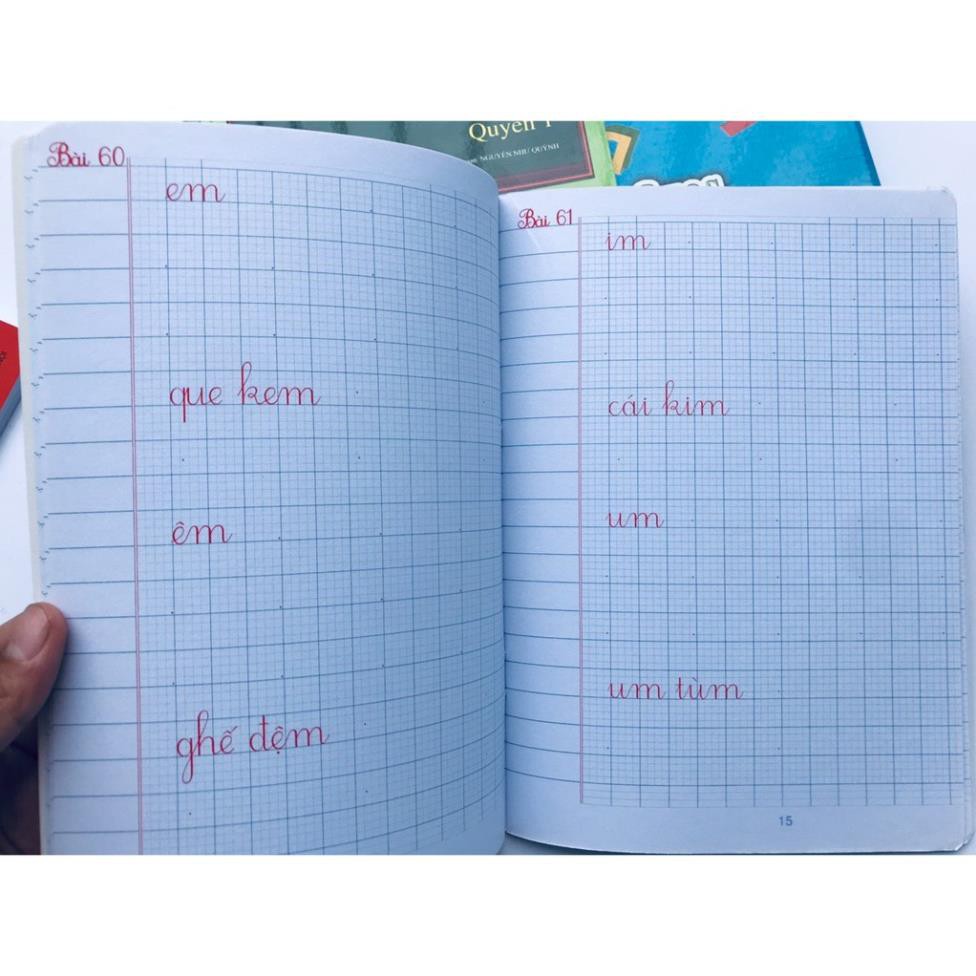 Quyển 1
NGUYỄN NHƯ QUỲNH
Bài 60
em
que kem
êm
ghế đệm
Bài 61
im
cái kim
um
um tùm
15